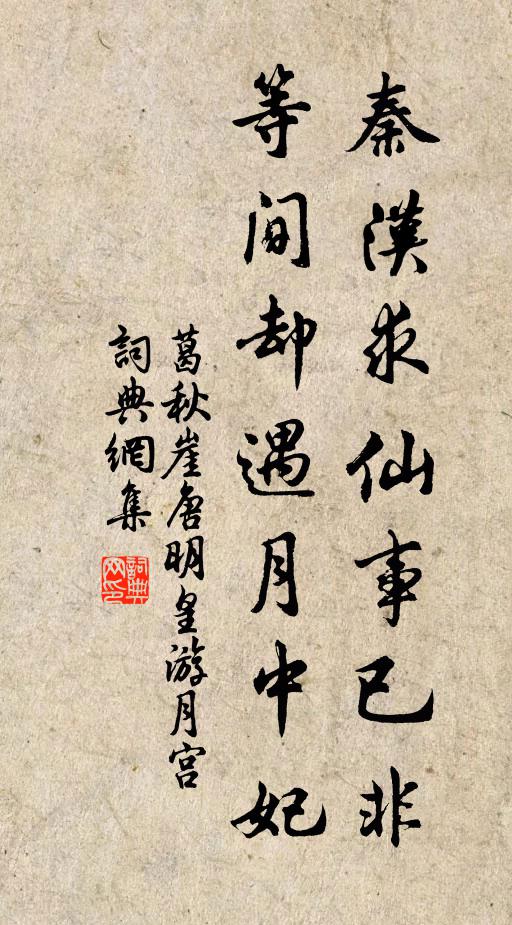 秦漢求仙事已非
等閒却遇月中妃
葛秋崖唐明皇游月宫
詞典網集
詞典网印